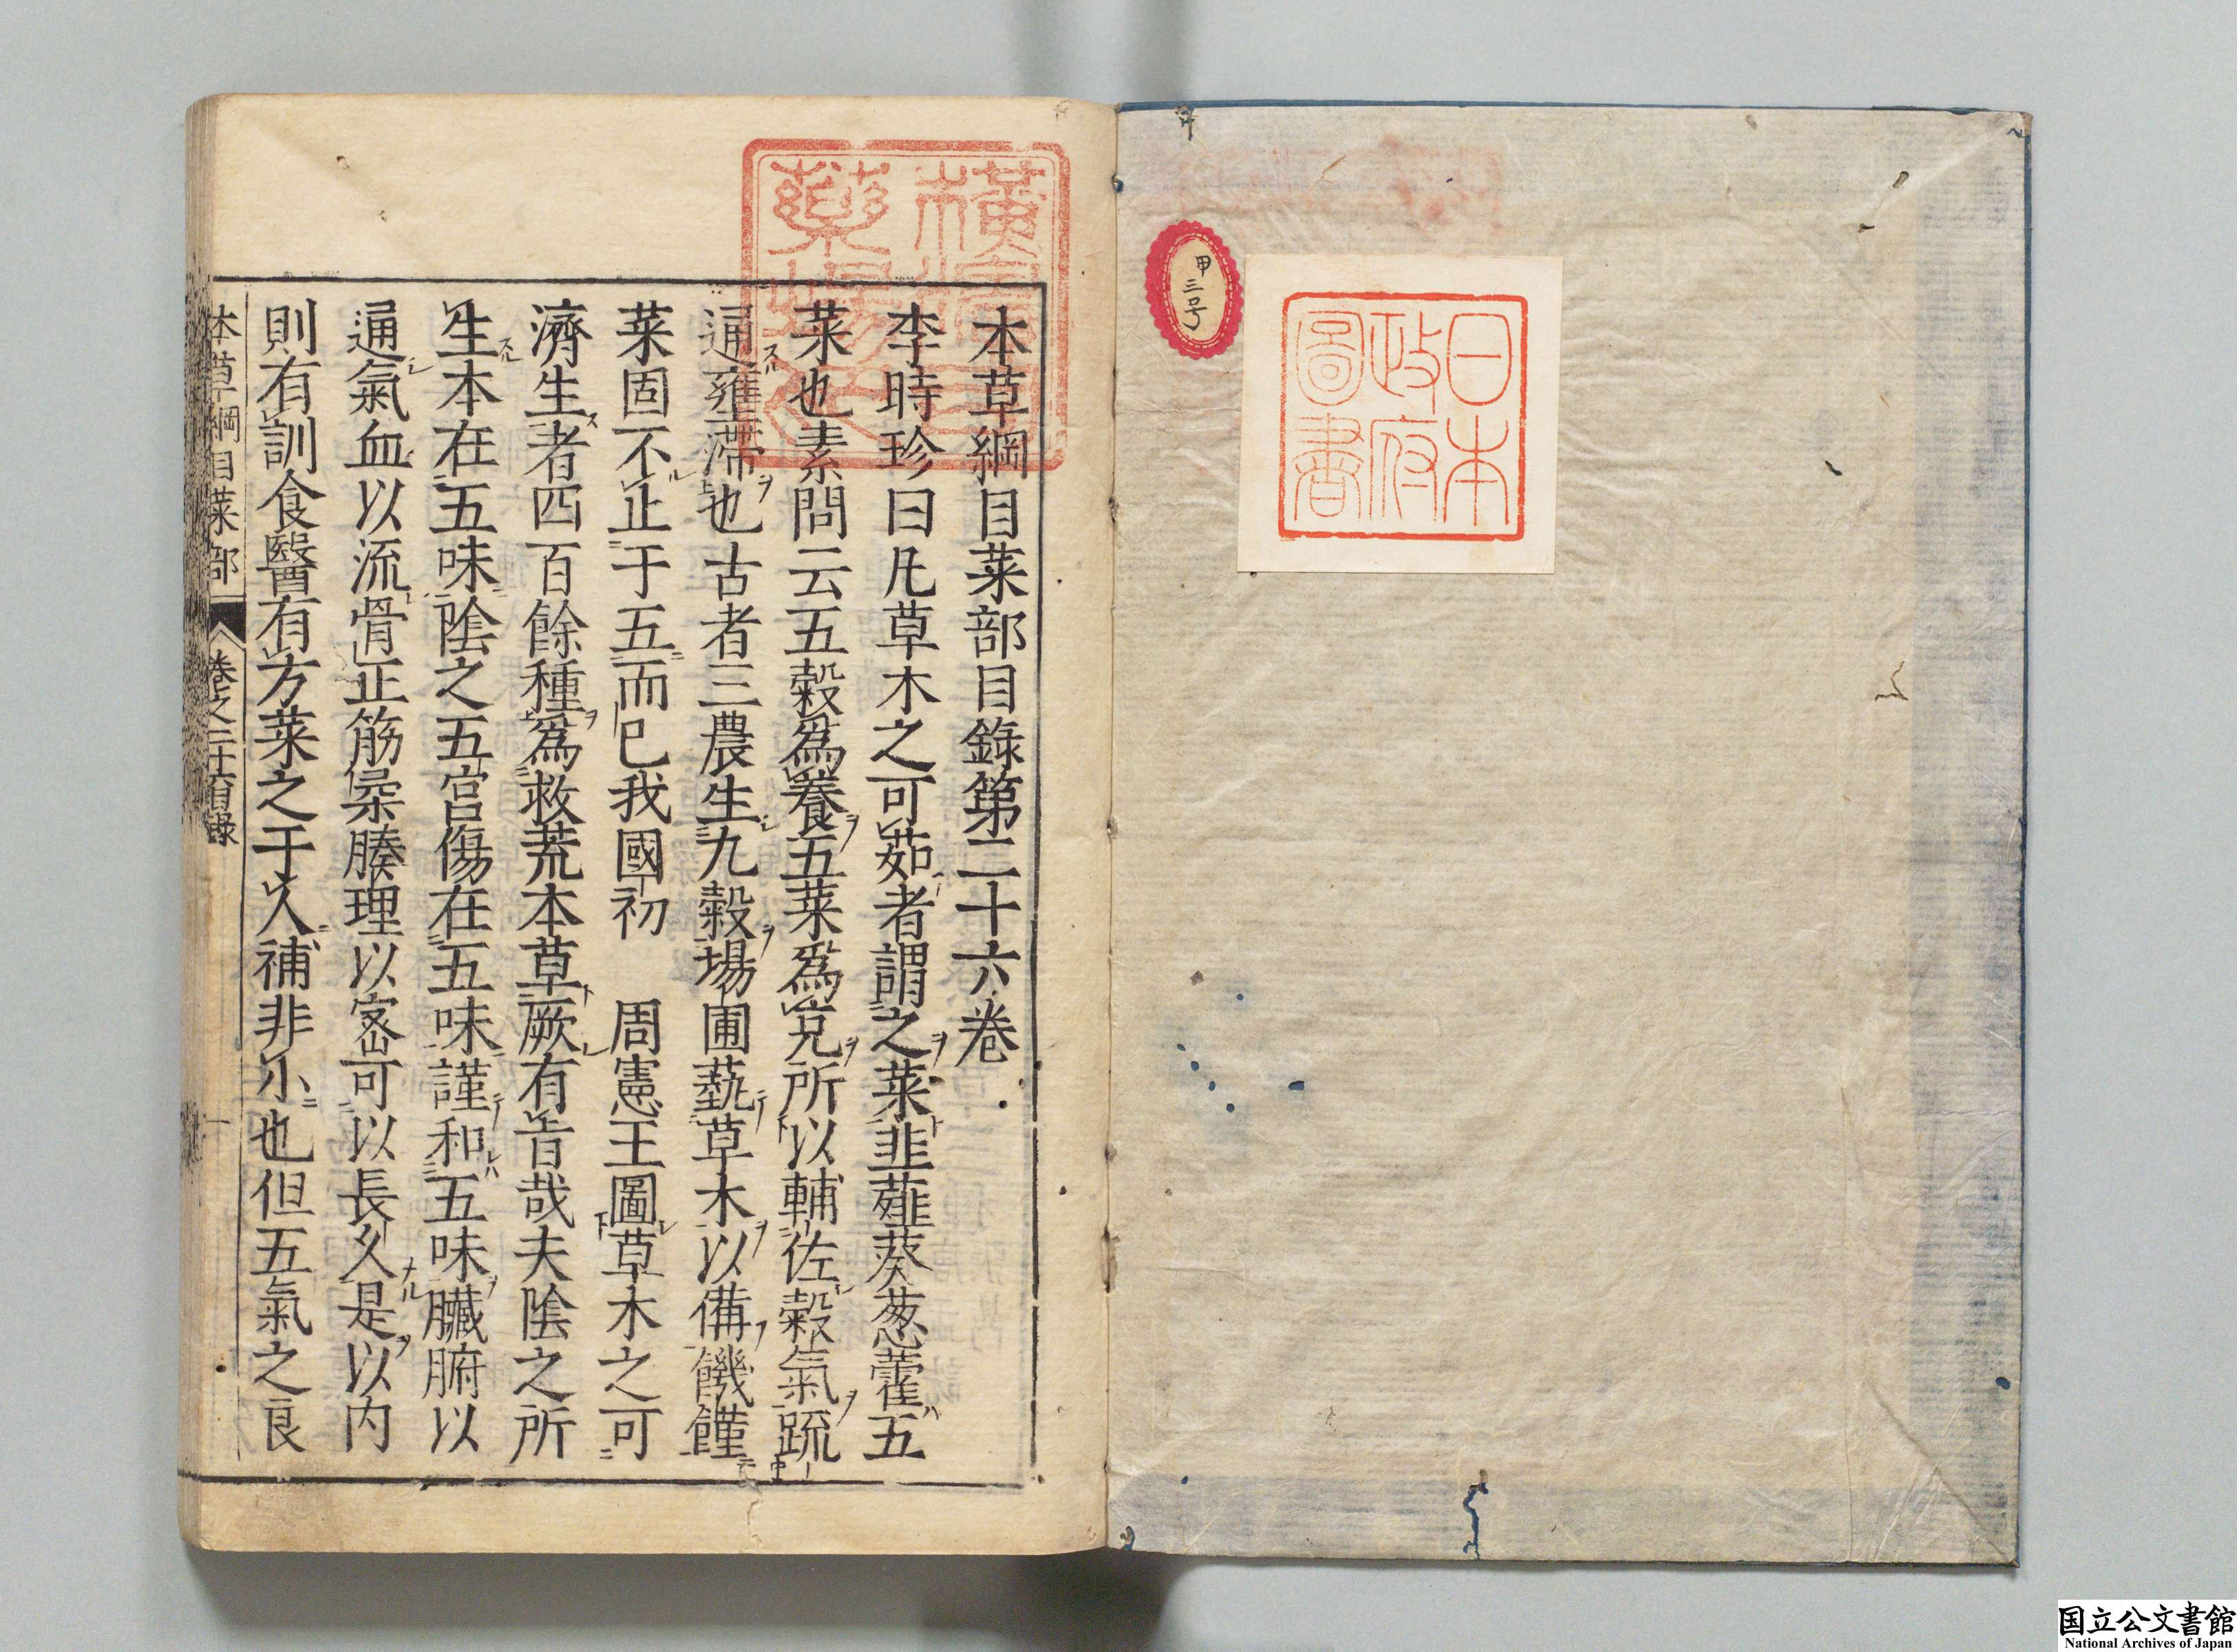 甲三号
日本
政府
圖書
本草綱目菜部目錄第二十六卷
李時珍曰凡草木之可茹者謂之菜韭薤葵葱藿五
菜也素問云五穀爲養五菜爲充所以輔佐穀氣疏
通壅滯也古者三農生九穀場圃蓺草木以備饑饉
菜固不止于五而已我國初　周憲王圖草木之可
濟生者四百餘種爲救荒本草厥有旨哉夫陰之所
生本在五味陰之五宮傷在五味謹和五味臟腑以
通氣血以流骨正筋柔腠理以密可以長久是以內
則有訓食醫有方菜之于人補非小也但五氣之良
本草綱目菜部　卷之二十六目錄　一
国立公文書館
National Archives of Japan